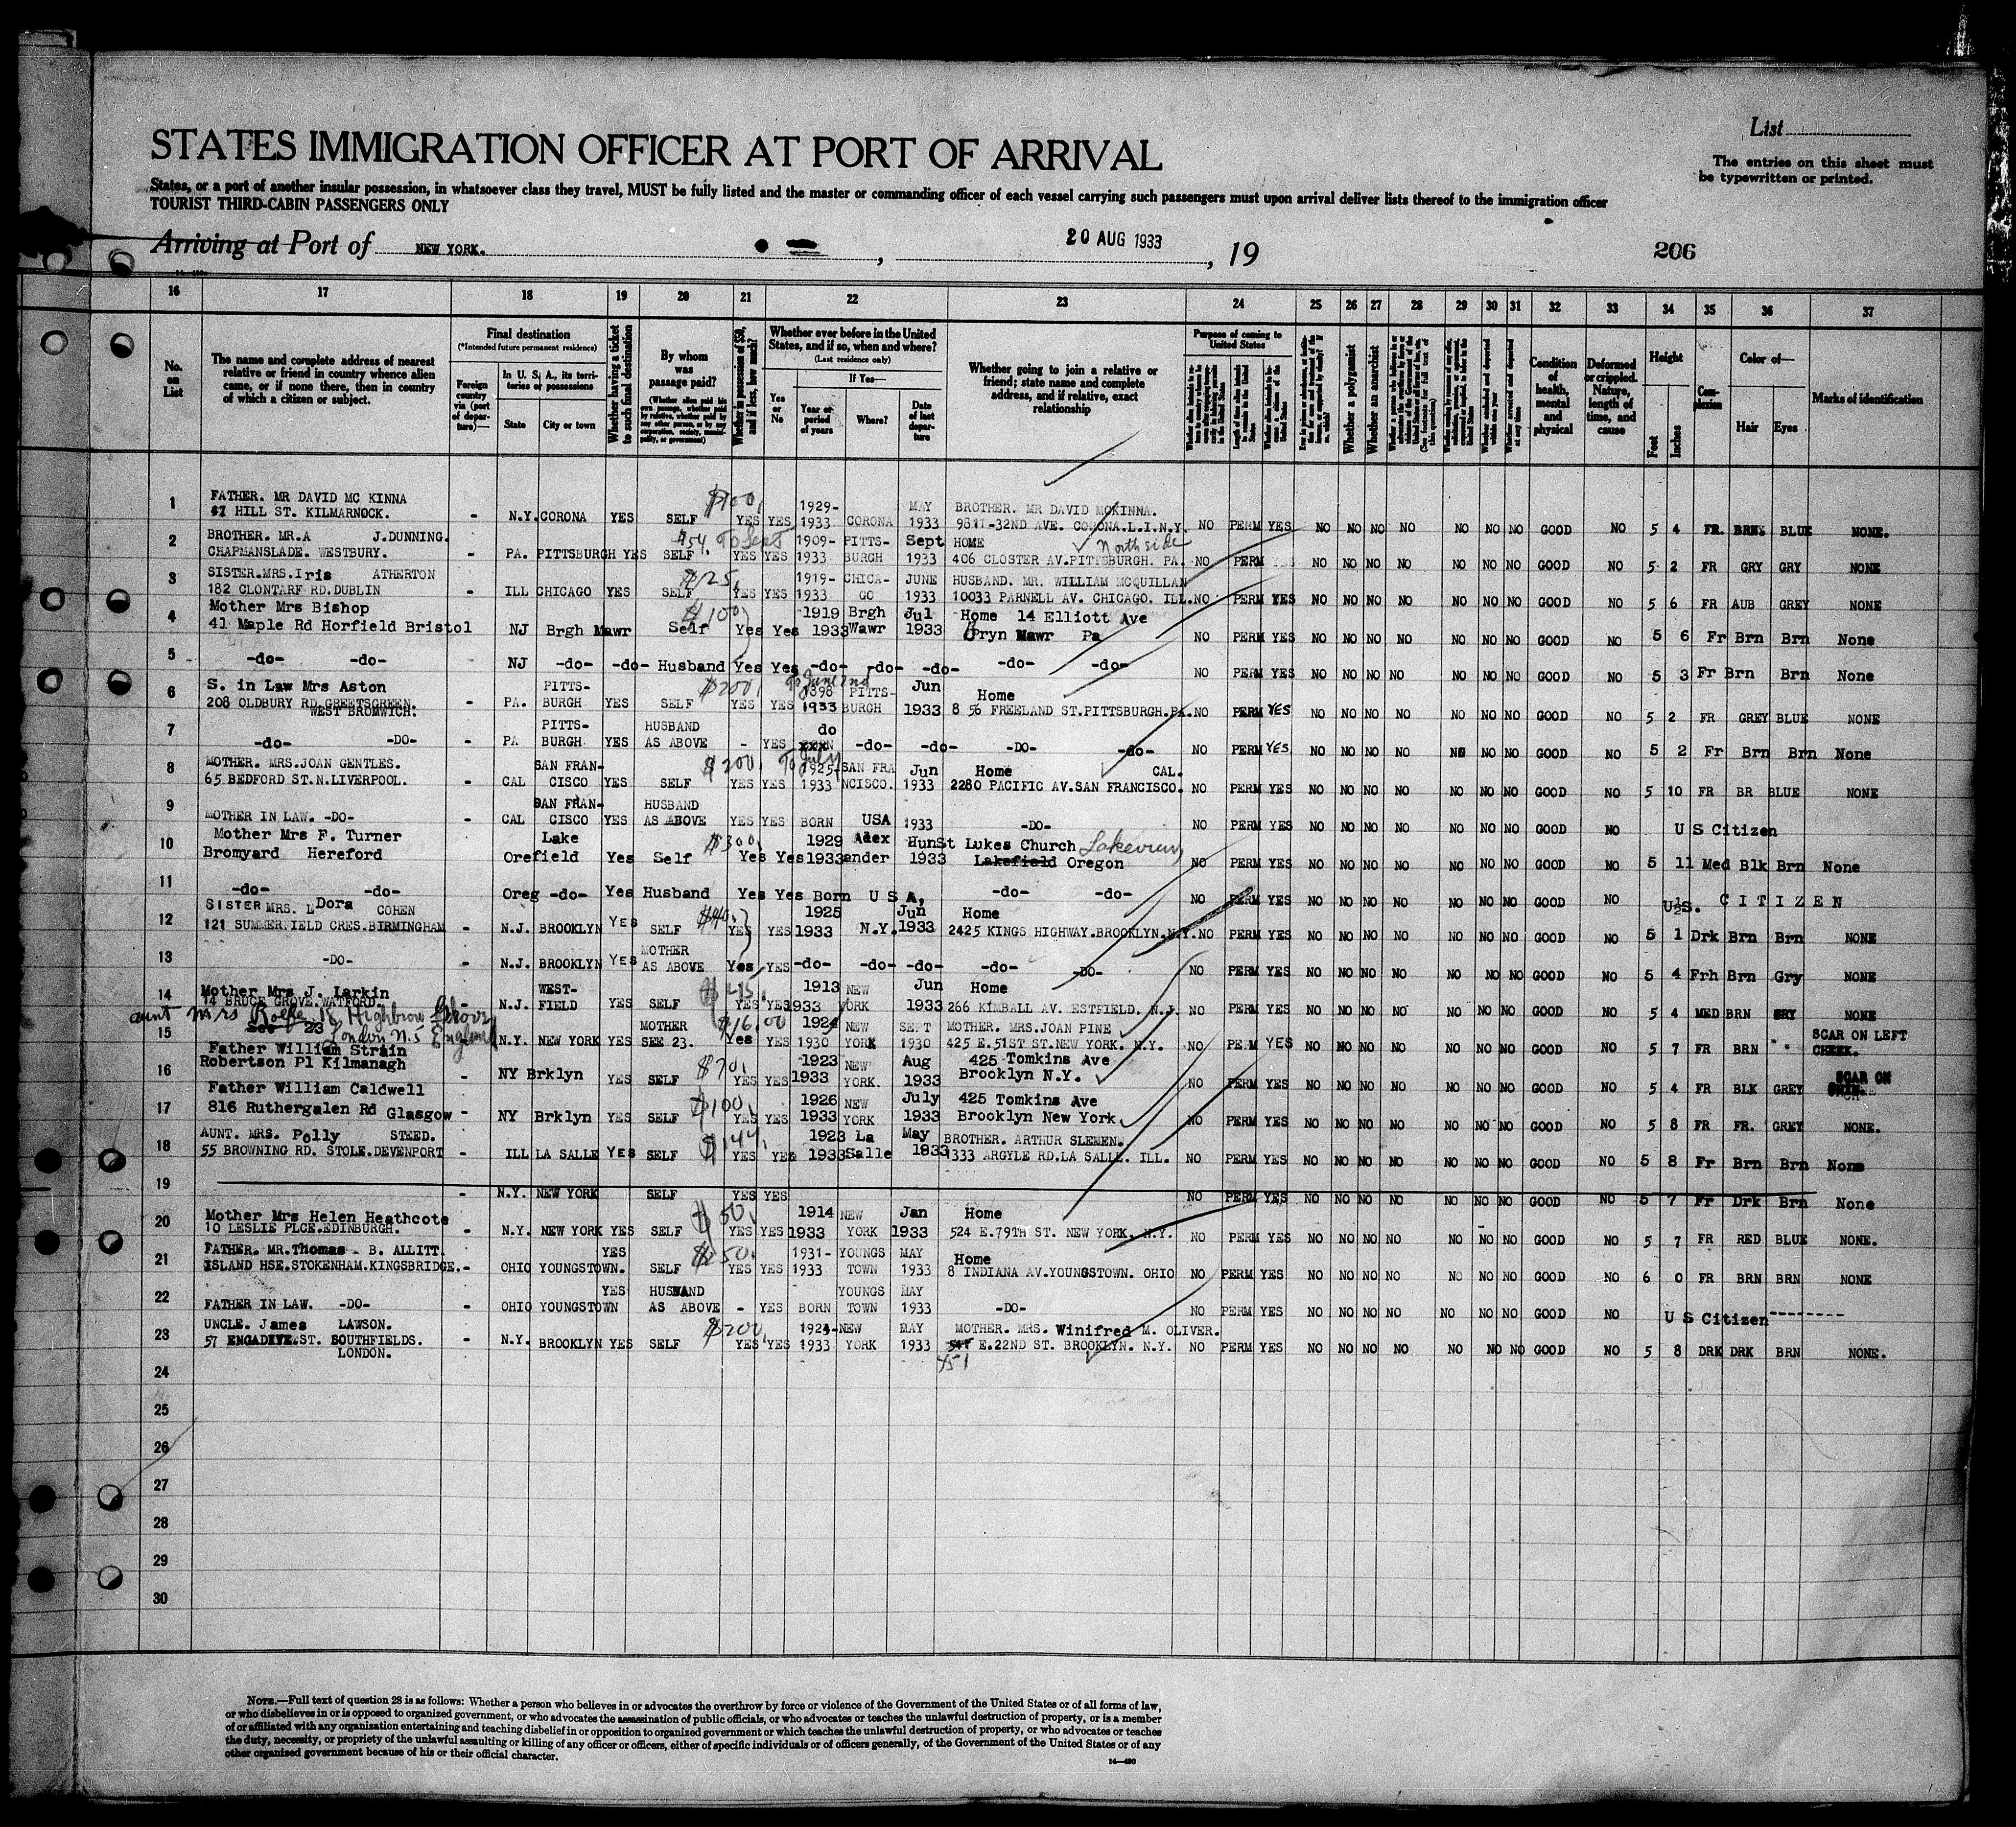 STATES IMMIGRATION OFFICER AT PORT OF ARRIVAL
List
The entries on this sheet must
be typewritten or printed.
States, or a port of another insular possession, in whatsoever class they travel, MUST be fully listed and the master or commanding officer of each vessel carrying such passengers must upon arrival deliver lists thereof to the immigration officer
TOURIST THIRD-CABIN PASSENGERS ONLY
Arriving at Port of NEW YORK. , 20 AUG 1933 , 19 206
16 17 18 19 20 21 22 23 24 25 26 27 28 29 30 31 32 33 34 35 36 37
No. on List
The name and complete address of nearest relative or friend in country whence alien came, or if none there, then in country of which a citizen or subject.
Final destination
(*Intended future permanent residence)
Foreign country via (port of departure)—
In U. S. A., its territories or possessions
State City or town
Whether having a ticket to such final destination
By whom was passage paid?
(Whether alien paid his own passage, whether paid by relative, whether paid by any other person, or by any corporation, society, municipality, or government)
Whether in possession of $50, and if less, how much?
Whether ever before in the United States, and if so, when and where?
(Last residence only)
Yes or No
If Yes—
Year or period of years Where? Date of last departure
Whether going to join a relative or friend; state name and complete address, and if relative, exact relationship
Purpose of coming to United States
Whether a polygamist
Whether an anarchist
Condition of health, mental and physical
Deformed or crippled. Nature, length of time, and cause
Height
Feet Inches
Complexion
Color of—
Hair Eyes
Marks of identification
1 FATHER. MR DAVID MC KINNA $100, 1929- MAY BROTHER. MR DAVID MCKINNA.
47 HILL ST. KILMARNOCK. - N.Y. CORONA YES SELF YES YES 1933 CORONA 1933 9811-32ND AVE. CORONA.L.I.N.Y. NO PERM YES NO NO NO NO NO NO NO GOOD NO 5 4 FR. BRN. BLUE NONE.
2 BROTHER. MR.A J.DUNNING. $54. To Sept 1909- PITTS- Sept HOME North side
CHAPMANSLADE. WESTBURY. - PA. PITTSBURGH YES SELF. YES YES 1933 BURGH 1933 406 CLOSTER AV.PITTSBURGH. PA. NO PERM YES NO NO NO NO NO NO NO GOOD NO 5 2 FR GRY GRY NONE
3 SISTER.MRS.Iris ATHERTON $125, 1919- CHICA- JUNE HUSBAND. MR. WILLIAM MCQUILLAN
182 CLONTARF RD.DUBLIN - ILL CHICAGO YES SELF YES YES 1933 GO 1933 10033 PARNELL AV. CHICAGO. ILL. NO PERM YES NO NO NO NO NO NO NO GOOD NO 5 6 FR AUB GREY NONE
4 Mother Mrs Bishop $100 1919 Brgh Jul Home 14 Elliott Ave
41 Maple Rd Horfield Bristol NJ Brgh Mawr Self Yes Yes 1933 Wawr 1933 Bryn Mawr Pa NO PERM YES NO NO NO NO NO NO NO GOOD NO 5 6 Fr Brn Brn None
5 -do- -do- NJ -do- -do- Husband Yes Yes -do- -do- -do- -do- -do- NO PERM YES NO NO NO NO NO NO NO GOOD NO 5 3 Fr Brn Brn None
6 S. in Law Mrs Aston PITTS- $200, To June 2nd 1898 PITTS- Jun Home
208 OLDBURY RD.GREETSGREEN. - PA. BURGH YES SELF YES YES 1933 BURGH 1933 8 56 FREELAND ST.PITTSBURGH.PA. NO PERM YES NO NO NO NO NO NO NO GOOD NO 5 2 FR GREY BLUE NONE
WEST BROMWICH.
7 PITTS- HUSBAND do
-do- -DO- - PA BURGH YES AS ABOVE - YES xxx -do- -do- -DO- -do- NO PERM YES NO NO NO NO NO NO NO GOOD NO 5 2 Fr Brn Brn None
8 MOTHER. MRS.JOAN GENTLES. SAN FRAN- $200, To July 1925 SAN FRA Jun Home CAL.
65 BEDFORD ST.N.LIVERPOOL. - CAL CISCO YES SELF YES YES 1933 NCISCO. 1933 2280 PACIFIC AV.SAN FRANCISCO. NO PERM YES NO NO NO NO NO NO NO GOOD NO 5 10 FR BR BLUE NONE
9 SAN FRAN- HUSBAND
MOTHER IN LAW. -DO- - CAL CISCO YES AS ABOVE YES YES BORN USA 1933 -DO- NO PERM YES NO NO NO NO NO NO NO GOOD NO U S Citizen
10 Mother Mrs F. Turner Lake $300, 1929 Alex Hun St Lukes Church Lakeview
Bromyard Hereford Orefield Yes Self Yes Yes 1933 ander 1933 Lakefield Oregon NO PERM YES NO NO NO NO NO NO NO GOOD NO 5 11 Med Blk Brn None
11 -do- -do- Oreg -do- Yes Husband Yes Yes Born U S A, -do- -do- NO PERM YES NO NO NO NO NO NO NO GOOD NO U.S. CITIZEN
12 SISTER MRS. L Dora COHEN $40. 1925 Jun Home
121 SUMMER.IELD CRES.BIRMINGHAM - N.J. BROOKLYN YES SELF YES YES 1933 N.Y. 1933 2425 KINGS HIGHWAY.BROOKLYN.N.Y. NO PERM YES NO NO NO NO NO NO NO GOOD NO 5 1½ Drk Brn Brn NONE
13 MOTHER
-DO- - N.J. BROOKLYN YES AS ABOVE Yes YES -do- -do- -do- -do- -DO- NO PERM YES NO NO NO NO NO NO NO GOOD NO 5 4 Frh Brn Gry NONE
14 Mother Mrs J. Larkin WEST- 1913 NEW Jun Home
14 BRUCE GROVE.WATFORD. - N.J. FIELD YES SELF YES YES 1933 YORK 1933 266 KIMBALL AV. ESTFIELD. N.J. NO PERM YES NO NO NO NO NO NO NO GOOD NO 5 4 MED BRN GRY NONE
aunt Mrs Rolfe, 18 Highbrow Grove
15 See 23 London N.5 England MOTHER $16.00 1924 NEW SEPT MOTHER. MRS.JOAN PINE SCAR ON LEFT
N.Y. NEW YORK YES SEE 23. Yes YES 1930 YORK 1930 425 E.51ST ST.NEW YORK. N.Y. NO PERM YES NO NO NO NO NO NO NO GOOD NO 5 7 FR BRN " " CHEEK.
16 Father William Strain 1923 NEW Aug 425 Tomkins Ave
Robertson Pl Kilmanagh NY Brklyn YES SELF $70, YES YES 1933 YORK. 1933 Brooklyn N.Y. NO PERM YES NO NO NO NO NO NO NO GOOD NO 5 4 FR BLK GREY SCAR ON
17 Father William Caldwell $100, 1926 NEW July 425 Tomkins Ave
816 Ruthergalen Rd Glasgow - NY Brklyn YES SELF YES YES 1933 YORK 1933 Brooklyn New York NO PERM YES NO NO NO NO NO NO NO GOOD NO 5 8 FR FR. GREY NONE.
18 AUNT. MRS. Polly STEED. $144, 1923 La May BROTHER. ARTHUR SLEMEN.
55 BROWNING RD. STOLE.DEVENPORT - ILL LA SALLE YES SELF YES YES 1933 Salle 1933 1333 ARGYLE RD.LA SALLE. ILL. NO PERM YES NO NO NO NO NO NO NO GOOD NO 5 8 Fr Brn Brn None
19 - N.Y. NEW YORK SELF YES YES NO PERM YES NO NO NO NO NO NO NO GOOD NO 5 7 Fr Drk Brn None
20 Mother Mrs Helen Heathcote $50, 1914 NEW Jan Home
10 LESLIE PLCE.EDINBURGH. - N.Y. NEW YORK YES SELF YES YES 1933 YORK 1933 524 E.79TH ST. NEW YORK. N.Y. NO PERM YES NO NO NO NO NO NO NO GOOD NO 5 7 FR RED BLUE NONE.
21 FATHER. MR.Thomas B. ALLITT. YES 1931- YOUNGS MAY Home
ISLAND HSE.STOKENHAM.KINGSBRIDGE. - OHIO YOUNGSTOWN. SELF YES YES 1933 TOWN 1933 8 INDIANA AV.YOUNGSTOWN. OHIO NO PERM YES NO NO NO NO NO NO NO GOOD NO 6 0 FR BRN BRN NONE
22 YES HUSBAND YOUNGS MAY
FATHER IN LAW. -DO- - OHIO YOUNGSTOWN AS ABOVE - YES BORN TOWN 1933 -DO- NO PERM YES NO NO NO NO NO NO NO GOOD NO U S Citizen--------
23 UNCLE. James LAWSON. $200, 1924- NEW MAY MOTHER. MRS. Winifred M. OLIVER.
57 ENGADIVE.ST. SOUTHFIELDS. - N.Y. BROOKLYN YES SELF YES YES 1933 YORK 1933 E.22ND ST. BROOKLYN. N.Y. NO PERM YES NO NO NO NO NO NO NO GOOD NO 5 8 DRK DRK BRN NONE.
LONDON. 451
24
25
26
27
28
29
30
NOTE.—Full text of question 28 is as follows: Whether a person who believes in or advocates the overthrow by force or violence of the Government of the United States or of all forms of law,
or who disbelieves in or is opposed to organized government, or who advocates the assassination of public officials, or who advocates or teaches the unlawful destruction of property, or is a member
of or affiliated with any organization entertaining and teaching disbelief in or opposition to organized government or which teaches the unlawful destruction of property, or who advocates or teaches
the duty, necessity, or propriety of the unlawful assaulting or killing of any officer or officers, either of specific individuals or of officers generally, of the Government of the United States or of any
other organized government because of his or their official character.
14—480